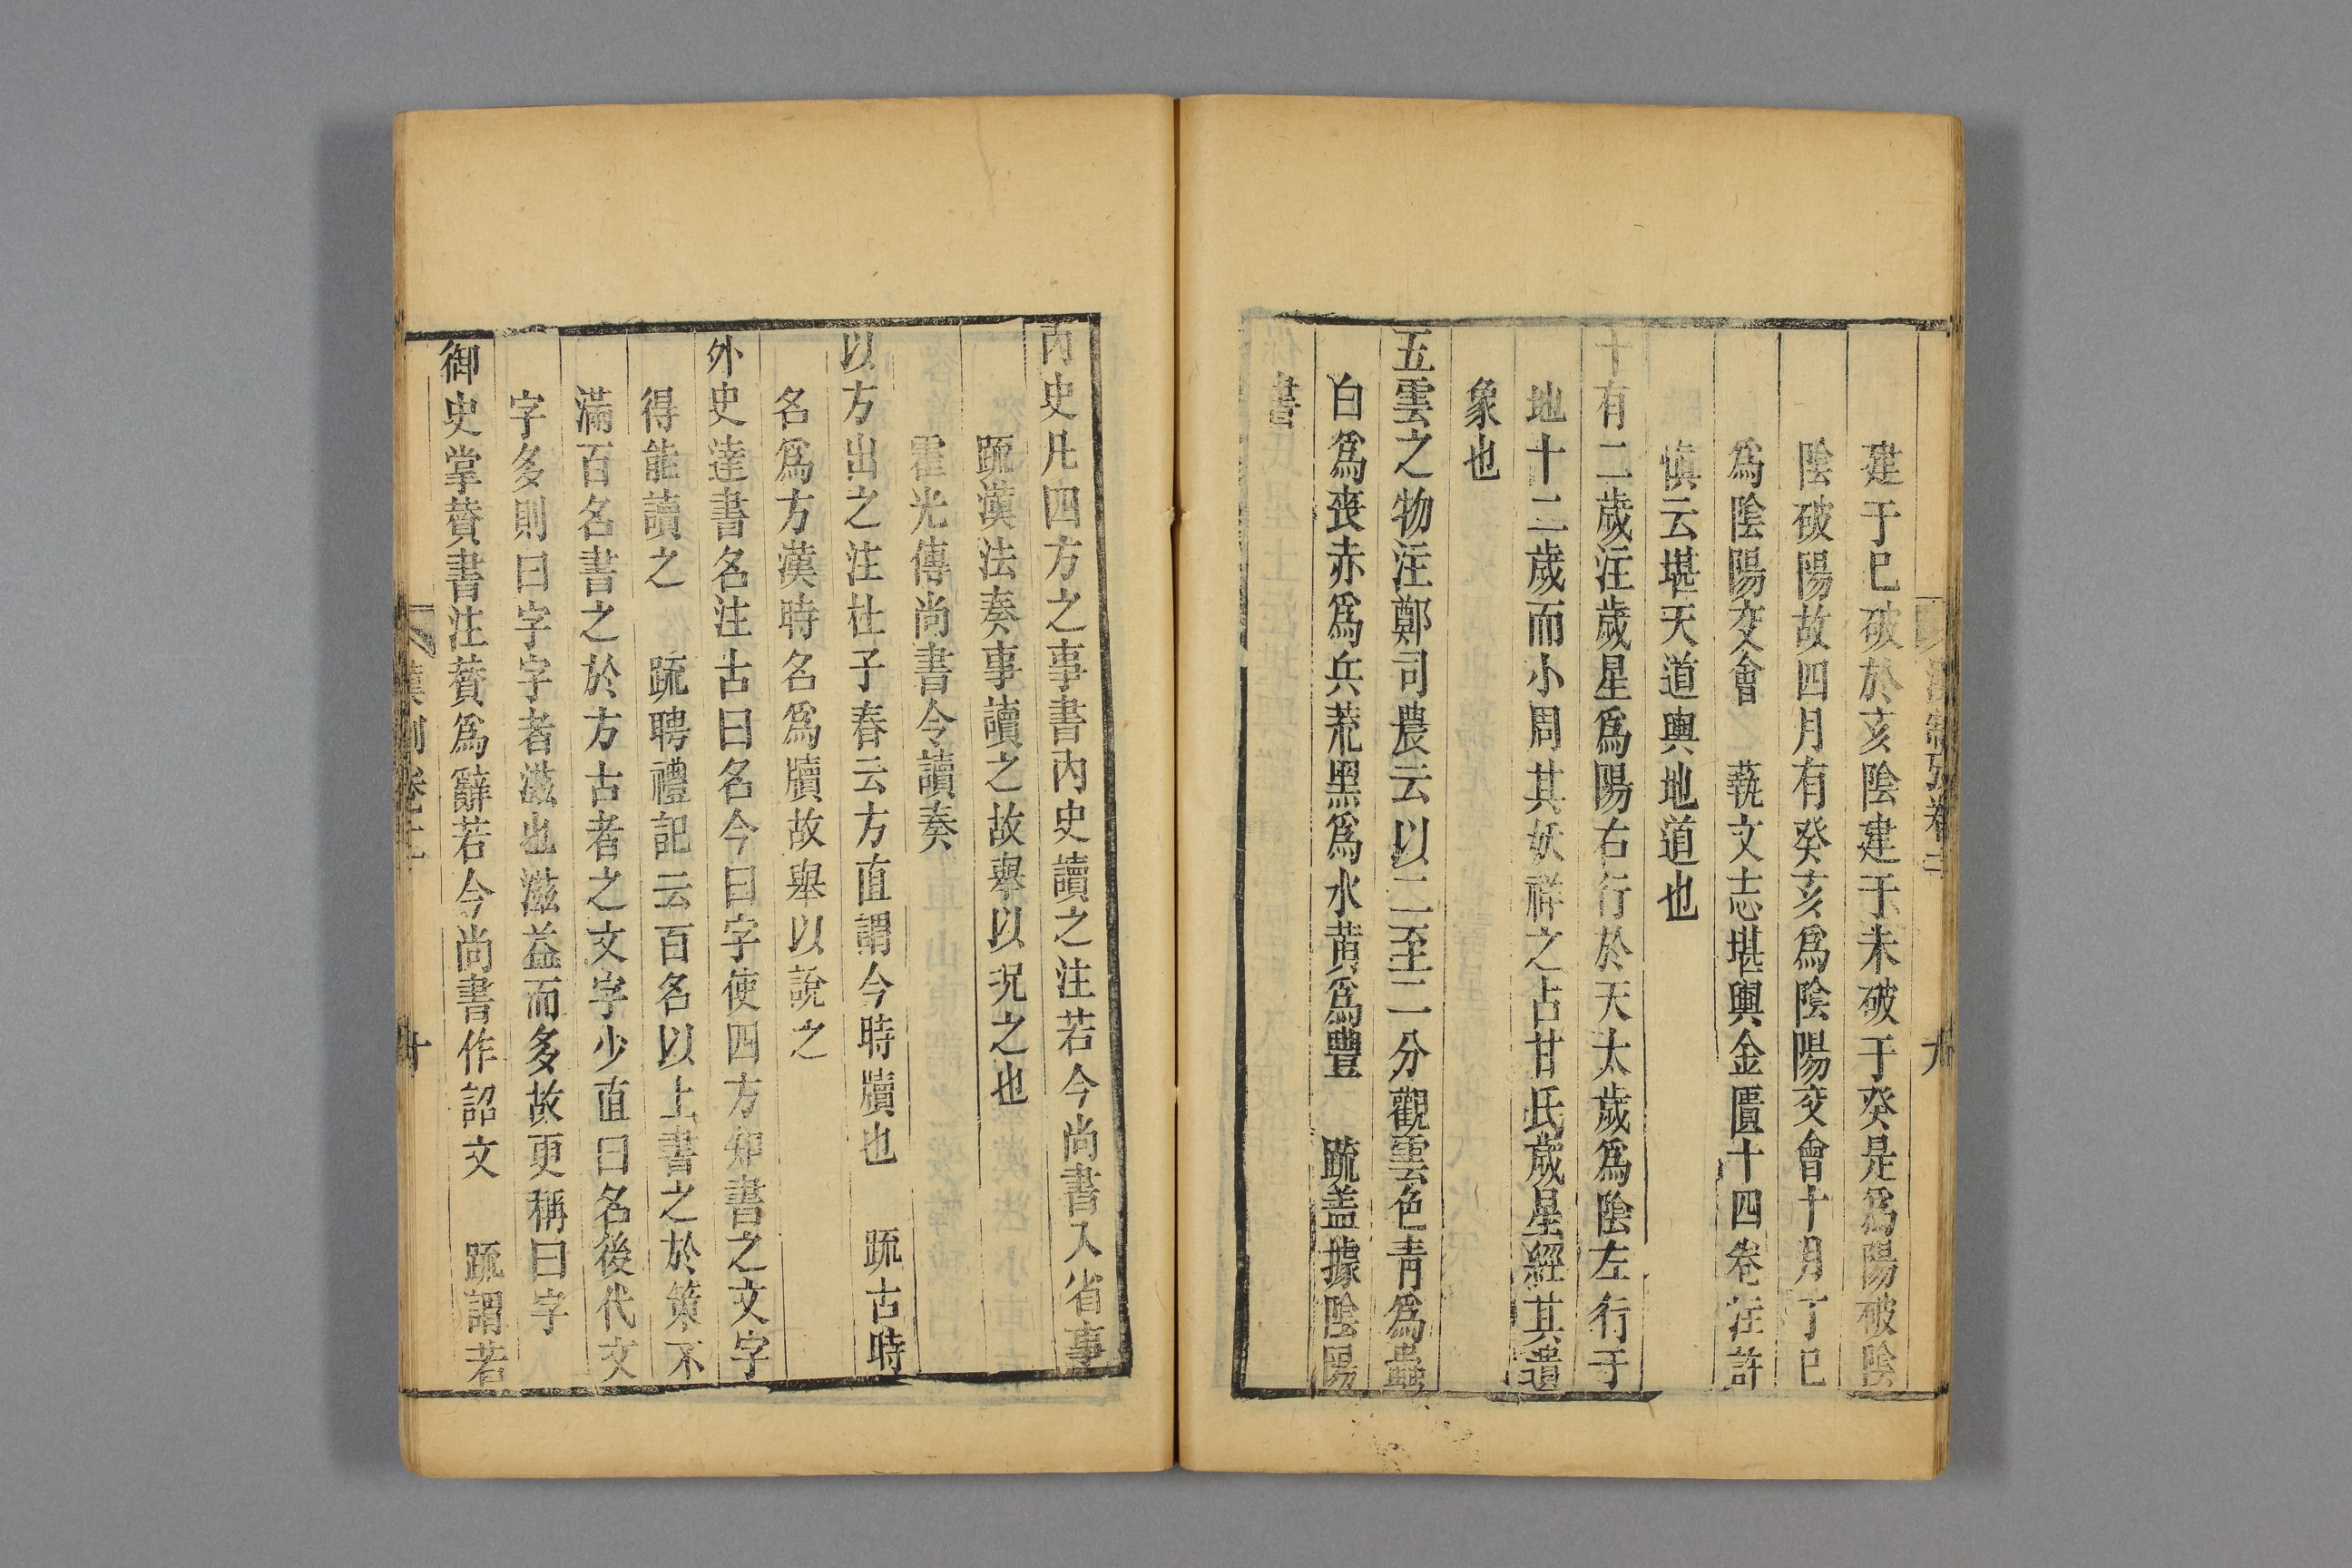 建于巳破於亥陰建于未破于癸是爲陽破陰
陰破陽故四月有癸亥爲陰陽交會十月丁巳
爲陰陽交會　蓺文志堪輿金匱十四卷注許
慎云堪天道輿地道也
十有二歲注歲星爲陽右行於天太歲爲陰左行于
地十二歲而小周其妖祥之占甘氏歲星經其遺
象也
五雲之物注鄭司農云以二至二分觀雲色青爲蟲
白爲喪赤爲兵荒黑爲水黄爲豐　疏盖據陰陽
書
內史凡四方之事書內史讀之注若今尚書入省事
疏漢法奏事讀之故舉以況之也
霍光傳尚書令讀奏
以方出之注杜子春云方直謂今時牘也　疏古時
名爲方漢時名爲牘故舉以說之
外史達書名注古曰名今曰字使四方知書之文字
得能讀之　疏聘禮記云百名以上書之於策不
滿百名書之於方古者之文字少直曰名後代文
字多則曰字字者滋也滋益而多故更稱曰字
御史掌贊書注贊爲辭若今尚書作詔文　疏謂若
卷二
十